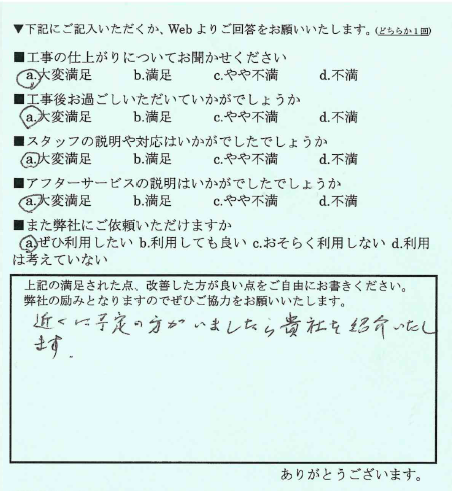 ▼下記にご記入いただくか、Webよりご回答をお願いいたします。(どちらか1回)
■工事の仕上がりについてお聞かせください
a.大変満足 b.満足 c.やや不満 d.不満
■工事後お過ごしいただいていかがでしょうか
a.大変満足 b.満足 c.やや不満 d.不満
■スタッフの説明や対応はいかがでしたでしょうか
a.大変満足 b.満足 c.やや不満 d.不満
■アフターサービスの説明はいかがでしたでしょうか
a.大変満足 b.満足 c.やや不満 d.不満
■また弊社にご依頼いただけますか
a.ぜひ利用したい b.利用しても良い c.おそらく利用しない d.利用
は考えていない
上記の満足された点、改善した方が良い点をご自由にお書きください。
弊社の励みとなりますのでぜひご協力をお願いいたします。
近くに予定の方がいましたら貴社を紹介いたし
ます.
ありがとうございます。